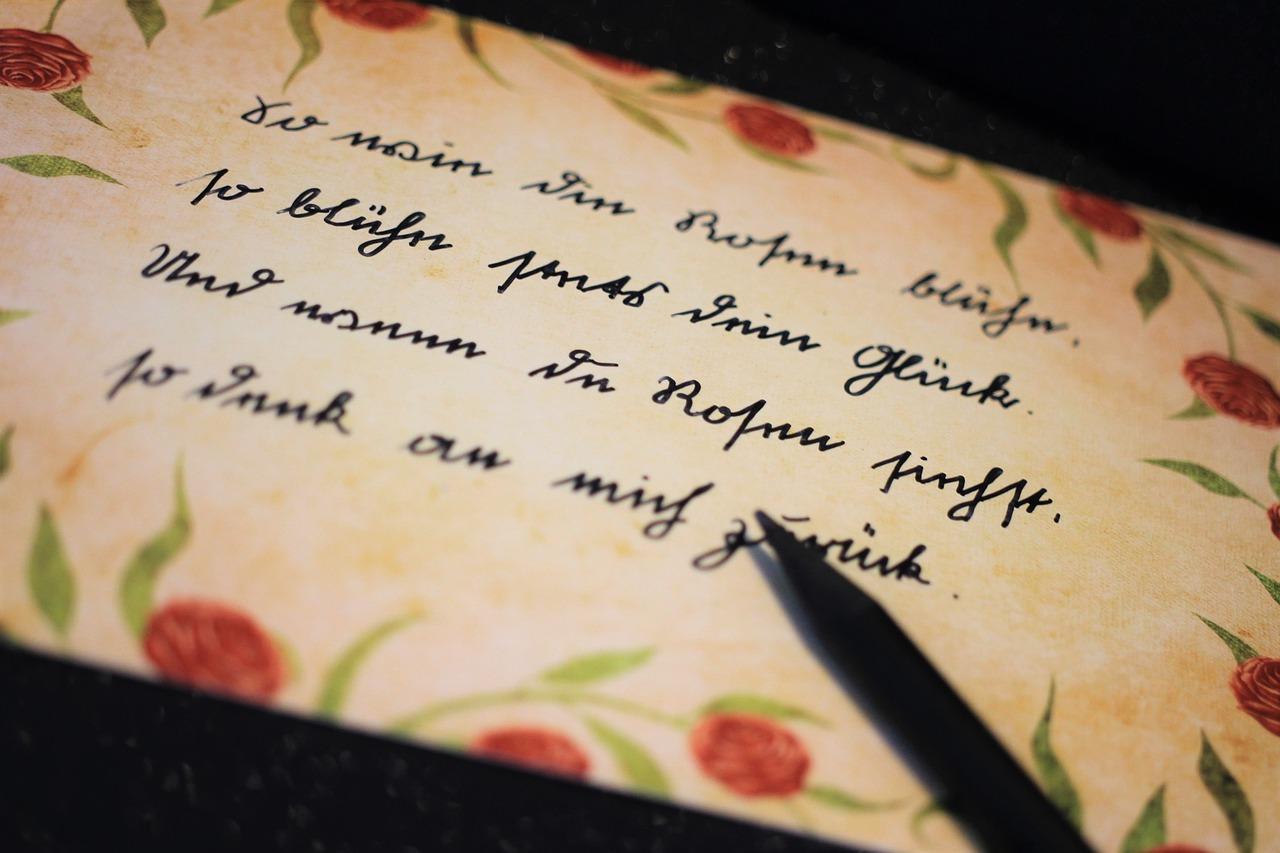 So wie die Rosen blühn,
so blühn stets dein Glück.
Und wenn du Rosen siehst,
so denk an mich zurück.